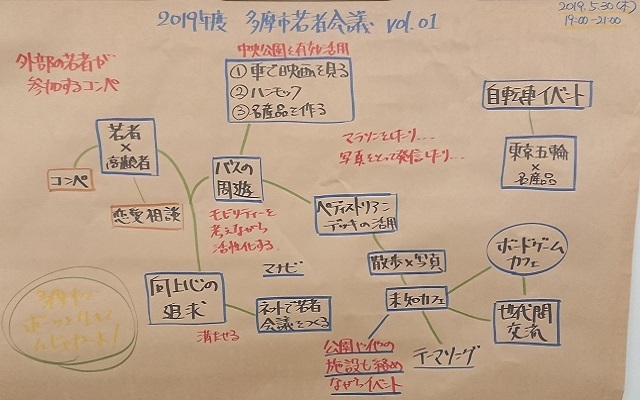 2019年度 多摩市若者会議 vol.01
2019.5.30(木)
19:00-21:00
外部の若者が
参加するコンペ
中央公園を有効活用
①車で映画を見る
②ハンモック
③名産品を作る
自転車イベント
若者
×
高齢者
コンペ
恋愛相談
バスの
周遊
モビリティーを
考えながら
活性化する
マラソンをしたり...
写真をとって発信したり...
東京五輪
×
名産品
ペディストリアン
デッキの活用
散歩×写真
ボードゲーム
カフェ
向上心の
追求
満たせる
マナビ
ネットで若者
会議をつくる
未知カフェ
世代間
交流
テーマソング
公園や他の
施設も絡め
ながらイベント